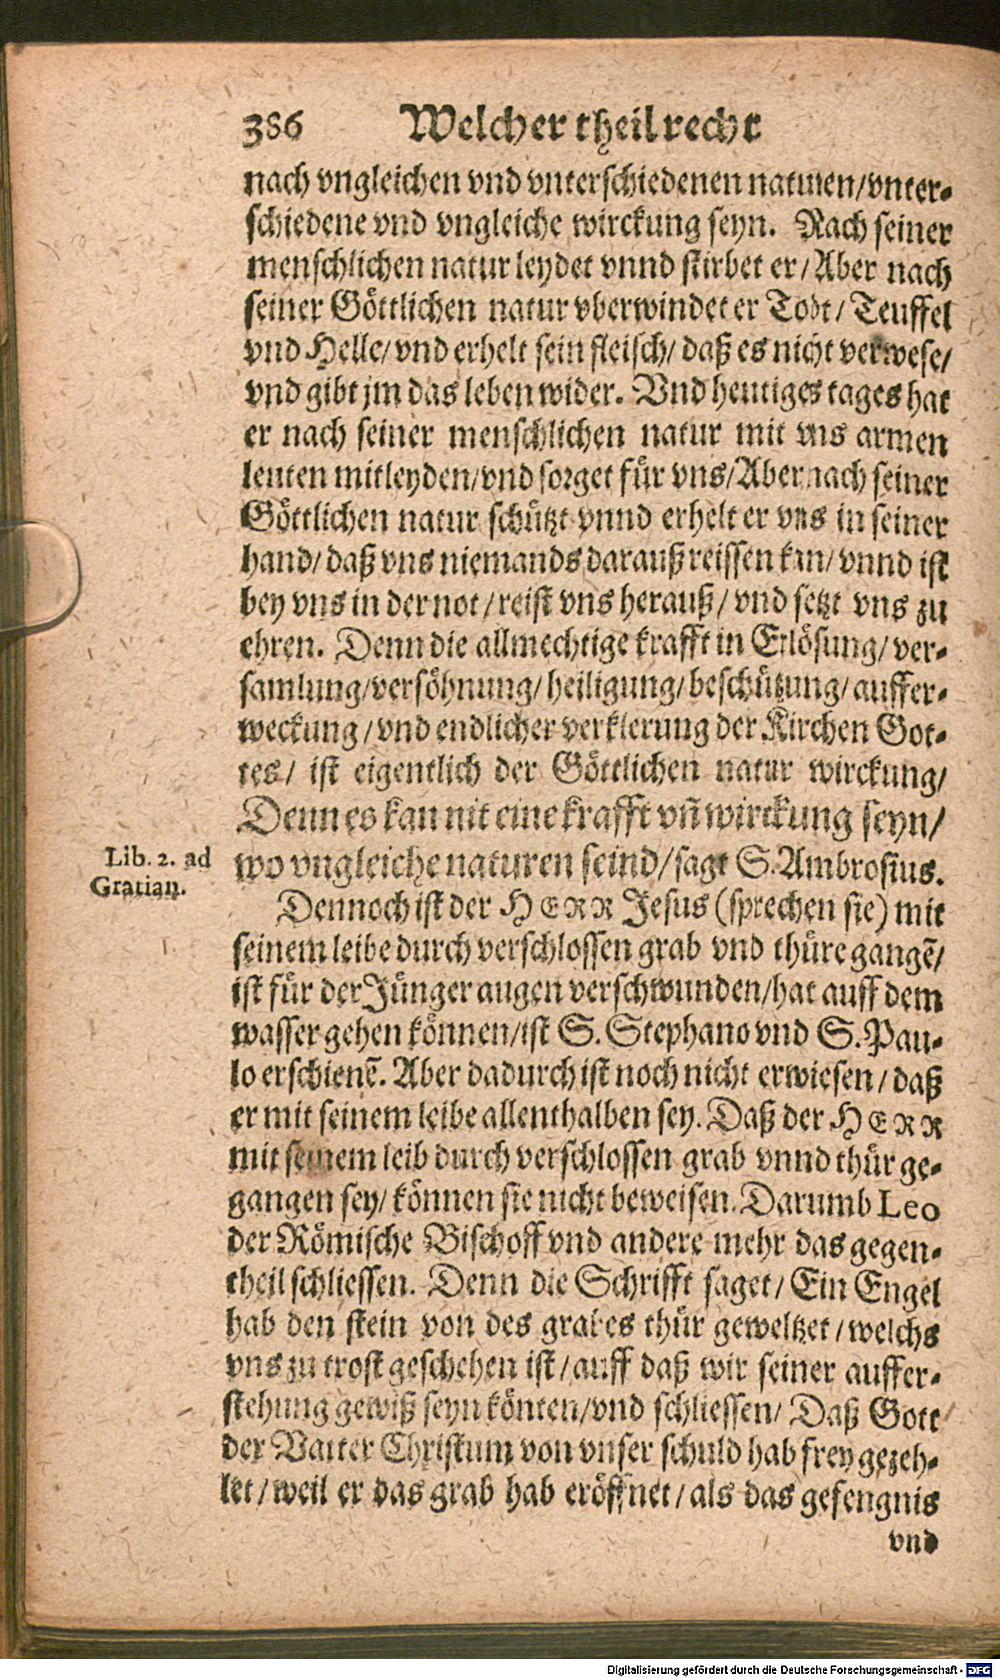 386 Welcher theil recht
nach vngleichen vnd vnterschiedenen naturen/vnter-
schiedene vnd vngleiche wirckung seyn. Nach seiner
menschlichen natur leydet vnnd stirbet er/Aber nach
seiner Göttlichen natur vberwindet er Todt/Teuffel
vnd Helle/vnd erhelt sein fleisch/daß es nicht verwese/
vnd gibt jm das leben wider. Vnd heutiges tages hat
er nach seiner menschlichen natur mit vns armen
leuten mitleyden/vnd sorget für vns/Aber nach seiner
Göttlichen natur schützt vnnd erhelt er vns in seiner
hand/daß vns niemands darauß reissen kan/vnnd ist
bey vns in der not/reist vns herauß/vnd setzt vns zu
ehren. Denn die allmechtige krafft in Erlösung/ver-
samlung/versöhnung/heiligung/beschützung/auffer-
weckung/vnd endlicher verklerung der Kirchen Got-
tes/ ist eigentlich der Göttlichen natur wirckung/
Denn es kan nit eine krafft vñ wirckung seyn/
Lib. 2. ad
Gratian.
wo vngleiche naturen seind/sagt S. Ambrosius.
Dennoch ist der HERR Jesus (sprechen sie) mit
seinem leibe durch verschlossen grab vnd thüre gangẽ/
ist für der Jünger augen verschwunden/hat auff dem
wasser gehen können/ist S. Stephano vnd S. Pau-
lo erschienẽ. Aber dadurch ist noch nicht erwiesen/daß
er mit seinem leibe allenthalben sey. Daß der HERR
mit seinem leib durch verschlossen grab vnnd thür ge-
gangen sey/können sie nicht beweisen. Darumb Leo
der Römische Bischoff vnd andere mehr das gegen-
theil schliessen. Denn die Schrifft saget/Ein Engel
hab den stein von des grabes thür geweltzet/welchs
vns zu trost geschehen ist/auff daß wir seiner auffer-
stehung gewiß seyn könten/vnd schliessen/Daß Gott
der Vatter Christum von vnser schuld hab frey gezeh-
let/weil er das grab hab eröffnet/als das gefengnis
vnd
Digitalisierung gefördert durch die Deutsche Forschungsgemeinschaft - DFG